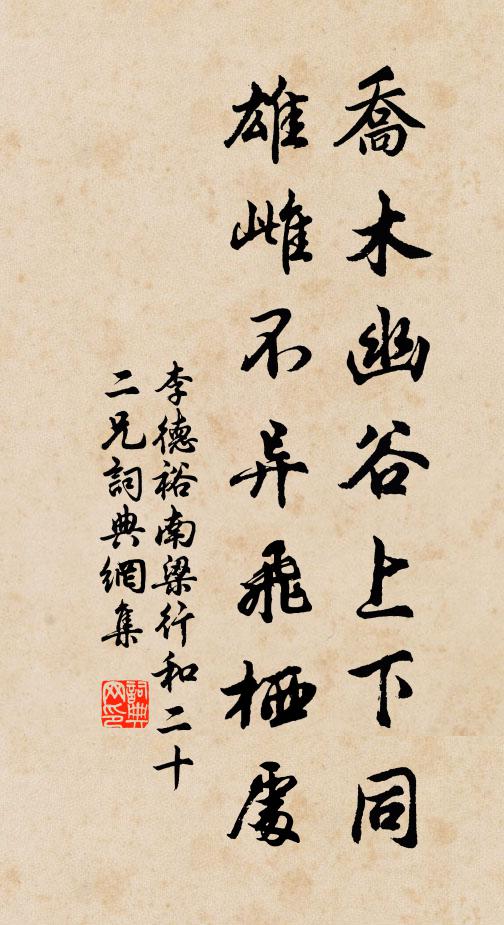 喬木幽谷上下同
雄雌不异飛栖處
李德裕南梁行和二十
二兄詞典網集
詞典網印